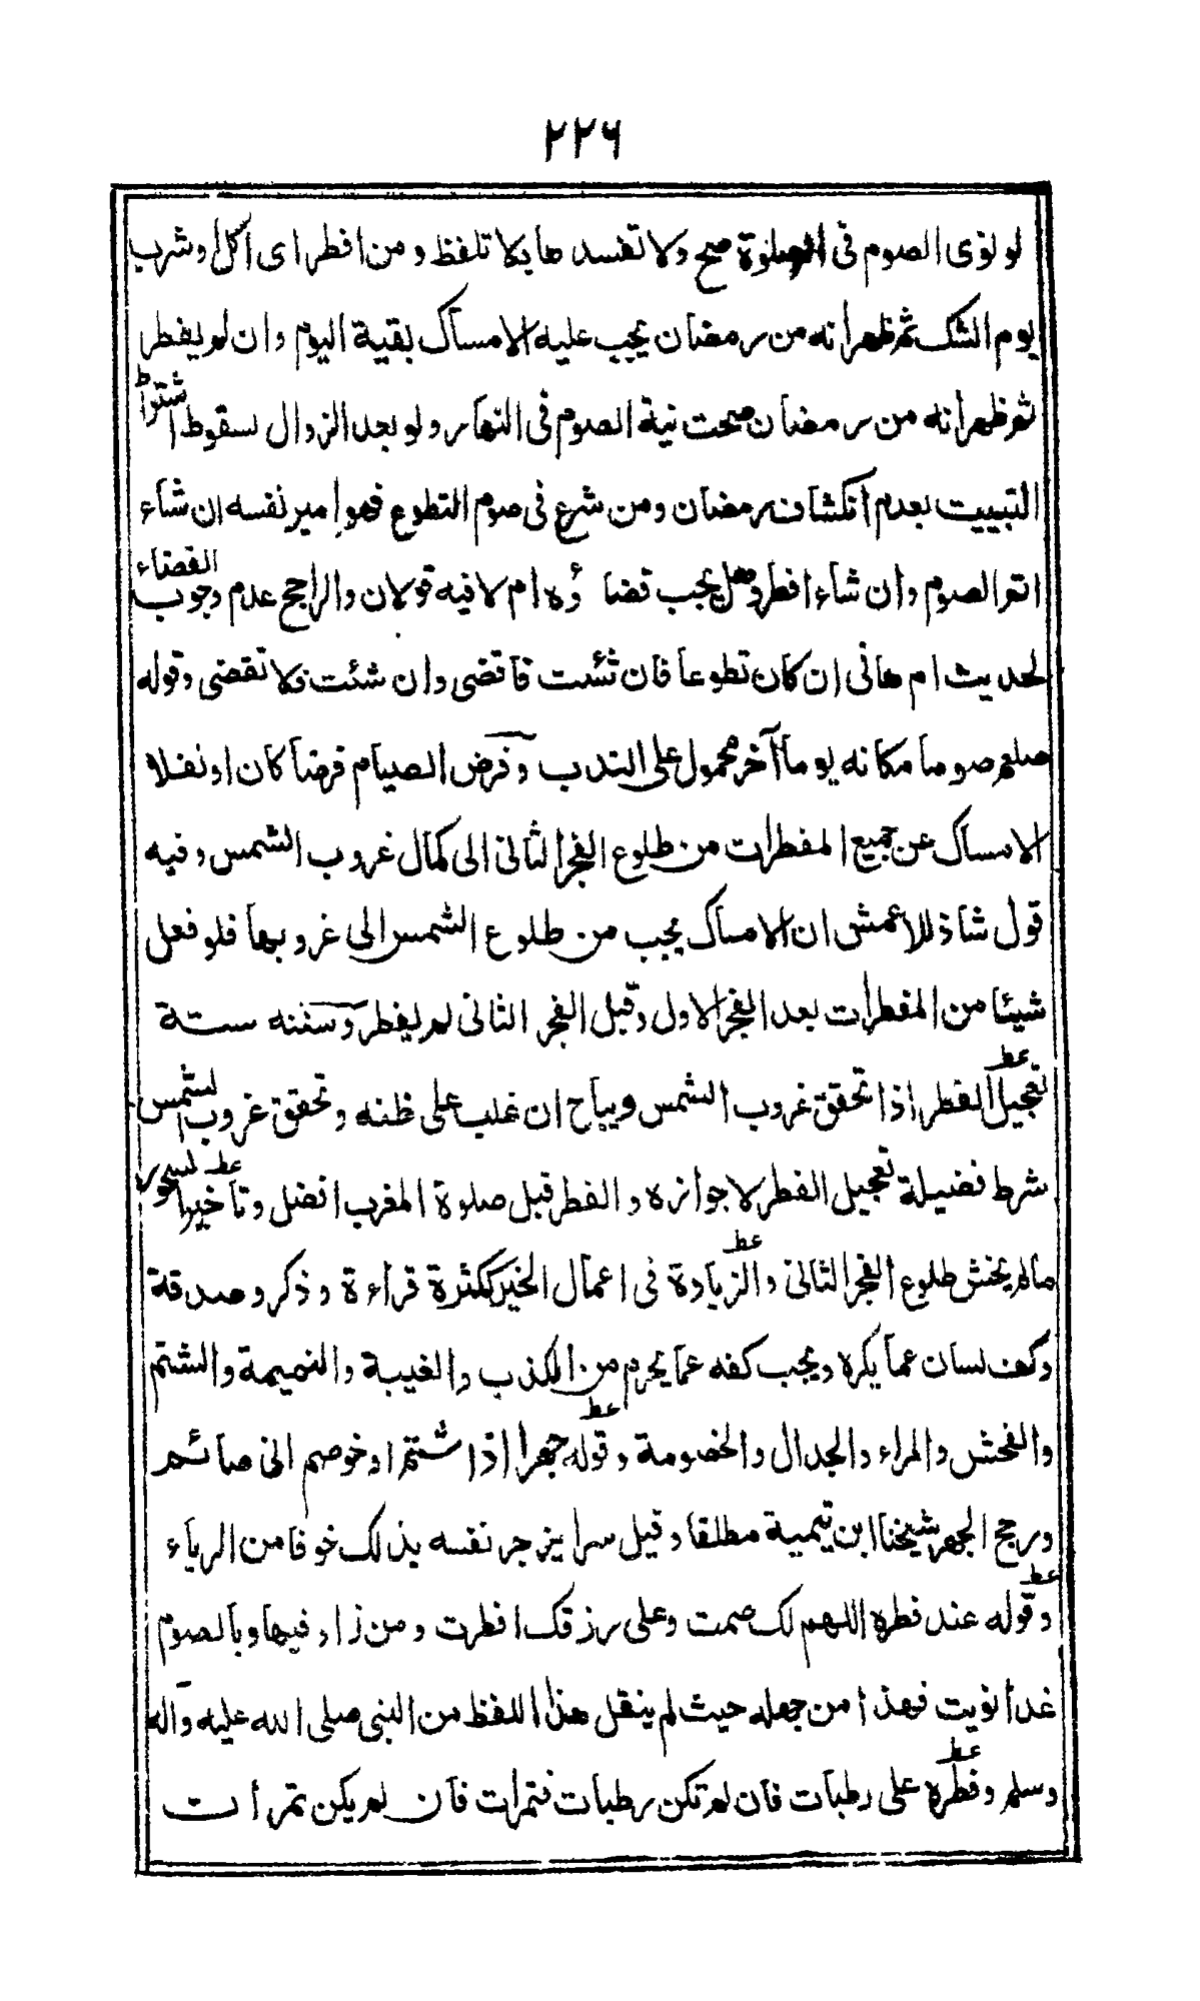 ٢٢٦
لو نوى الصوم فى الصلوة صح ولا تفسد هابلا تلفظ ومن افطر اى اكل اوشرب
يوم الشك ثم ظهر انه من رمضان يجب عليه الامساك بقية اليوم وان لم يفطر
ثم ظهر انه من رمضان صحت نية الصوم فى النهار ولو بعد الزوال لسقوط اشتراط
التبييت بعدم انكشاف رمضان ومن شرع فى صوم التطوع فهو امير نفسه ان شاء
اتم الصوم وان شاء افطر وهل يجب قضاؤه ام لا فيه قولان والراجح عدم وجوب القضاء
لحديث ام هانى ان كان تطوعا فان شئت فاقضى وان شئت فلا تقضى وقوله
صلعم صوما مكانه يوما آخر محمول على الندب وفرض الصيام فرضا كان او نفلا
الامساك عن جميع المفطرات من طلوع الفجر الثانى الى كمال غروب الشمس وفيه
قول شاذ للاعمش ان الامساك يجب من طلوع الشمس الى غروبها فلو فعل
شيئا من المفطرات بعد الفجر الاول وقبل الفجر الثانى لم يفطر وسننه ستة
تعجيل الفطر اذا تحقق غروب الشمس ويباح ان غلب على ظنه وتحقق غروب الشمس
شرط فضيلة تعجيل الفطر لا جوازه والفطر قبل صلوة المغرب افضل وتاخير السحور
مالم يخش طلوع الفجر الثانى والزيادة فى اعمال الخير ككثرة قراءة وذكر وصدقة
وكف لسان عما يكره ويجب كفه عما يحرم من الكذب والغيبة والنميمة والشتم
والفحش والمراء والجدال والخصومة وقوله جهرا اذا شتم او خوصم انى صائم
ورجح الجهر شيخنا ابن تيمية مطلقا وقيل سرا يزجر نفسه بذلك خوفا من الرياء
وقوله عند فطره اللهم لك صمت وعلى رزقك افطرت ومن زاد فيها وبالصوم
غدا نويت فهذا من جهله حيث لم ينقل هذا اللفظ من النبى صلى الله عليه وآله
وسلم وفطره على رطبات فان لم تكن رطبات فتمرات فان لم يكن تمرات